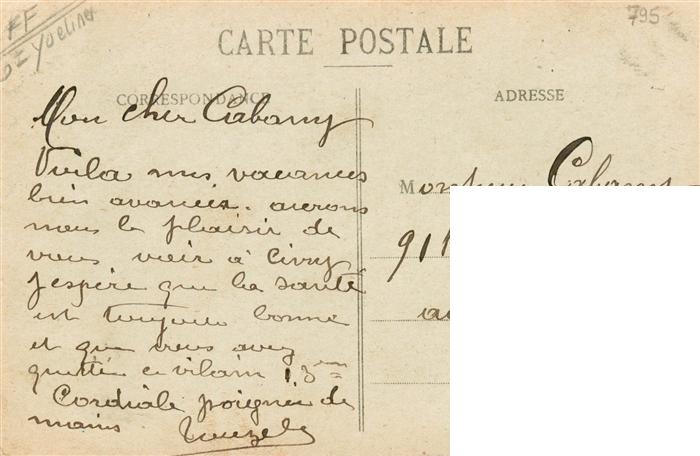 FF
Yveline
795
CARTE POSTALE
CORRESPONDANCE
ADRESSE
Mon cher Cabany
Voila mes vacances
bien avancées. aurons
nous le plaisir de
vous voir à Civry
J'espère que la santé
est toujours bonne
et que vous avez
quitté ce vilain 13em
Cordiale poignée de
mains
Monsieur Cabany
911
au